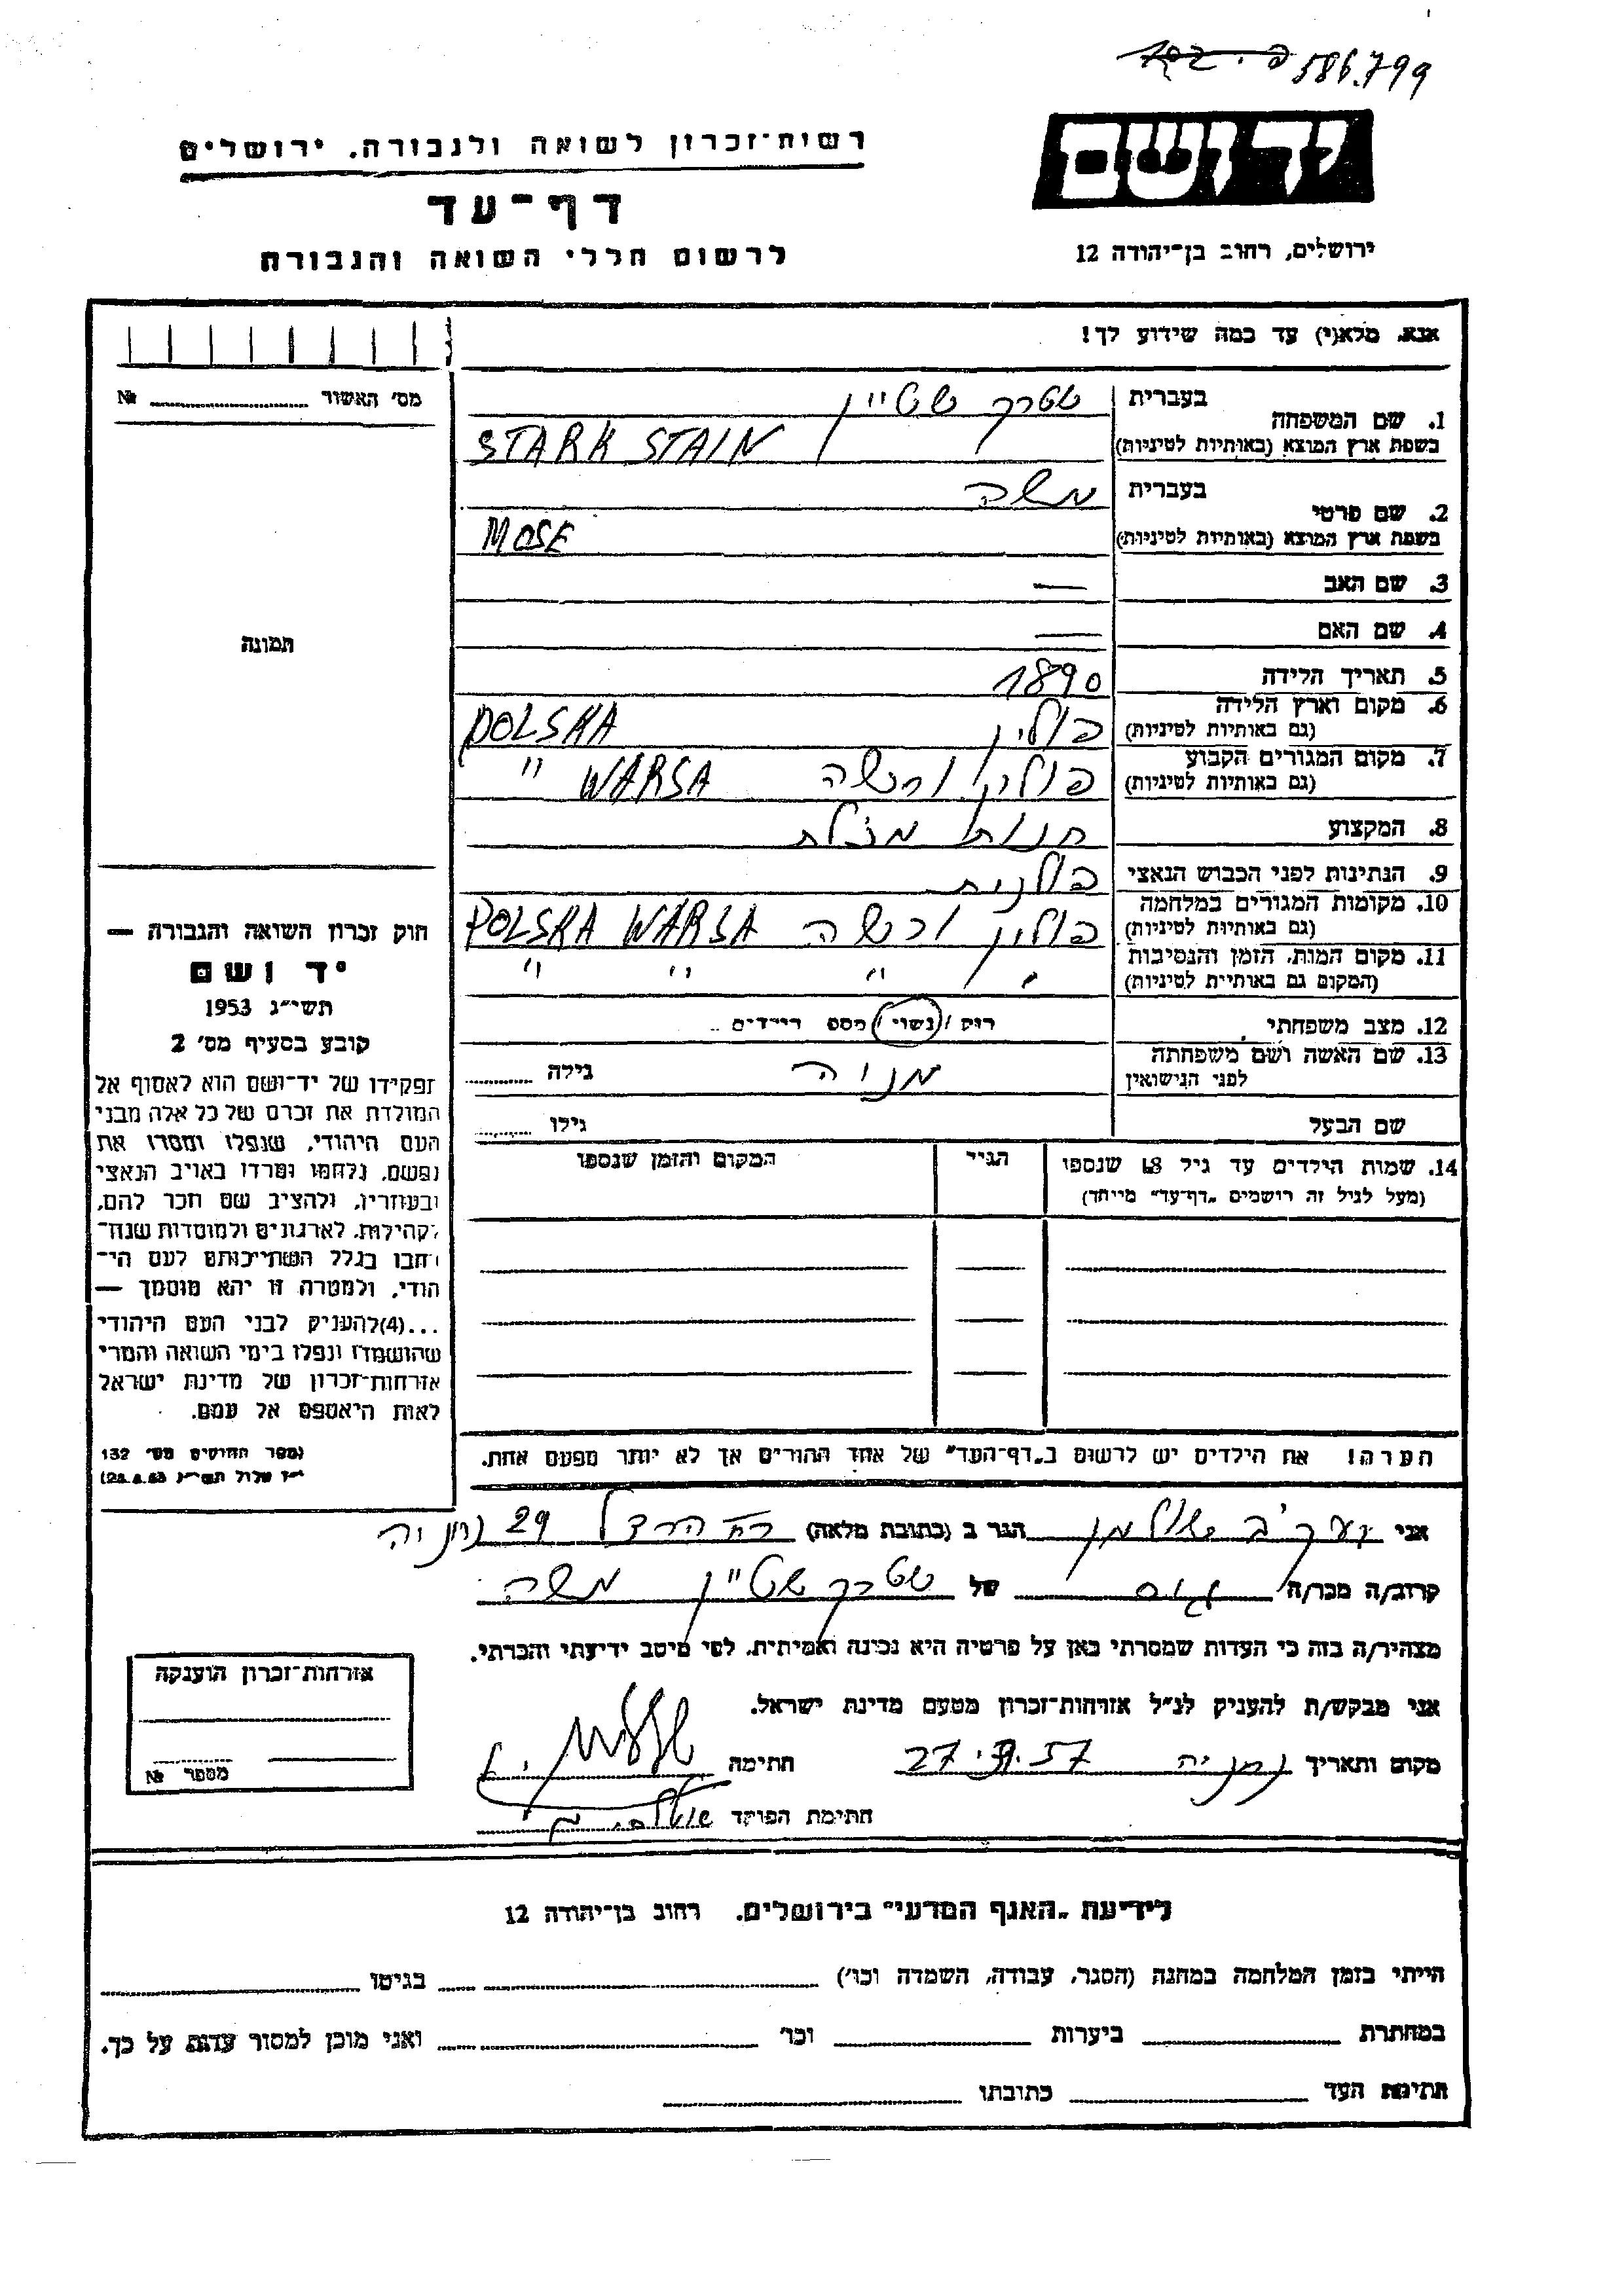 586.799
יד ושם
רשות־זכרון לשואה ולגבורה. ירושלים
דף־עד
לרשום חללי השואה והגבורה
ירושלים, רחוב בן־יהודה 12
אנא, מלא(י) עד כמה שידוע לך!
מס׳ האשור № 
1. שם המשפחה
בעברית שטרק שטיין
בשפת ארץ המוצא (באותיות לטיניות) STARK STAIN
2. שם פרטי
בעברית משה
בשפת ארץ המוצא (באותיות לטיניות) MOSE
3. שם האב —
4. שם האם —
5. תאריך הלידה 1890
6. מקום וארץ הלידה פולין POLSKA
(גם באותיות לטיניות)
7. מקום המגורים הקבוע פולין ורשה WARSA "
(גם באותיות לטיניות)
8. המקצוע חנות
9. הנתינות לפני הכבוש הנאצי פולנית
10. מקומות המגורים במלחמה פולין ורשה POLSKA WARSA
(גם באותיות לטיניות)
11. מקום המות, הזמן והנסיבות " " " "
(המקום גם באותיות לטיניות)
12. מצב משפחתי רווק / נשוי / מספר הילדים
13. שם האשה ושם משפחתה מניה גילה
לפני הנישואין
שם הבעל גילו
14. שמות הילדים עד גיל 18 שנספו הגיל המקום והזמן שנספו
(מעל לגיל זה רושמים „דף־עד" מיוחד)
הערה! את הילדים יש לרשום ב„דף־העד" של אחד ההורים אך לא יותר מפעם אחת.
תמונה
חוק זכרון השואה והגבורה —
יד ושם
תשי״ג 1953
קובע בסעיף מס׳ 2
תפקידו של יד־ושם הוא לאסוף אל
המולדת את זכרם של כל אלה מבני
העם היהודי, שנפלו ומסרו את
נפשם, נלחמו ומרדו באויב הנאצי
ובעוזריו, ולהציב שם וזכר להם,
לקהילות, לארגונים ולמוסדות שנח־
רבו בגלל השתייכותם לעם הי־
הודי, ולמטרה זו יהא מוסמך —
...(4)להעניק לבני העם היהודי
שהושמדו ונפלו בימי השואה והמרי
אזרחות־זכרון של מדינת ישראל
לאות היאספם אל עמם.
(ספר החוקים מס׳ 132
י״ז אלול תשי״ג 28.8.53)
אני יעקב שולמן הגר ב (כתובת מלאה) רח הרצל 29 נתניה
קרוב/ה מכר/ה גיס של שטרק שטיין משה
מצהיר/ה בזה כי העדות שמסרתי כאן על פרטיה היא נכונה ואמיתית, לפי מיטב ידיעתי והכרתי.
אני מבקש/ת להעניק לנ״ל אזרחות־זכרון מטעם מדינת ישראל.
מקום ותאריך נתניה 57 חתימה
חתימת הפוקד
אזרחות־זכרון הוענקה
מספר №
לידיעת „האגף המדעי" בירושלים. רחוב בן־יהודה 12
הייתי בזמן המלחמה במחנה (הסגר, עבודה, השמדה וכו׳) בגיטו
במחתרת ביערות וכו׳ ואני מוכן למסור עדות על כך.
חתימת העד כתובתו